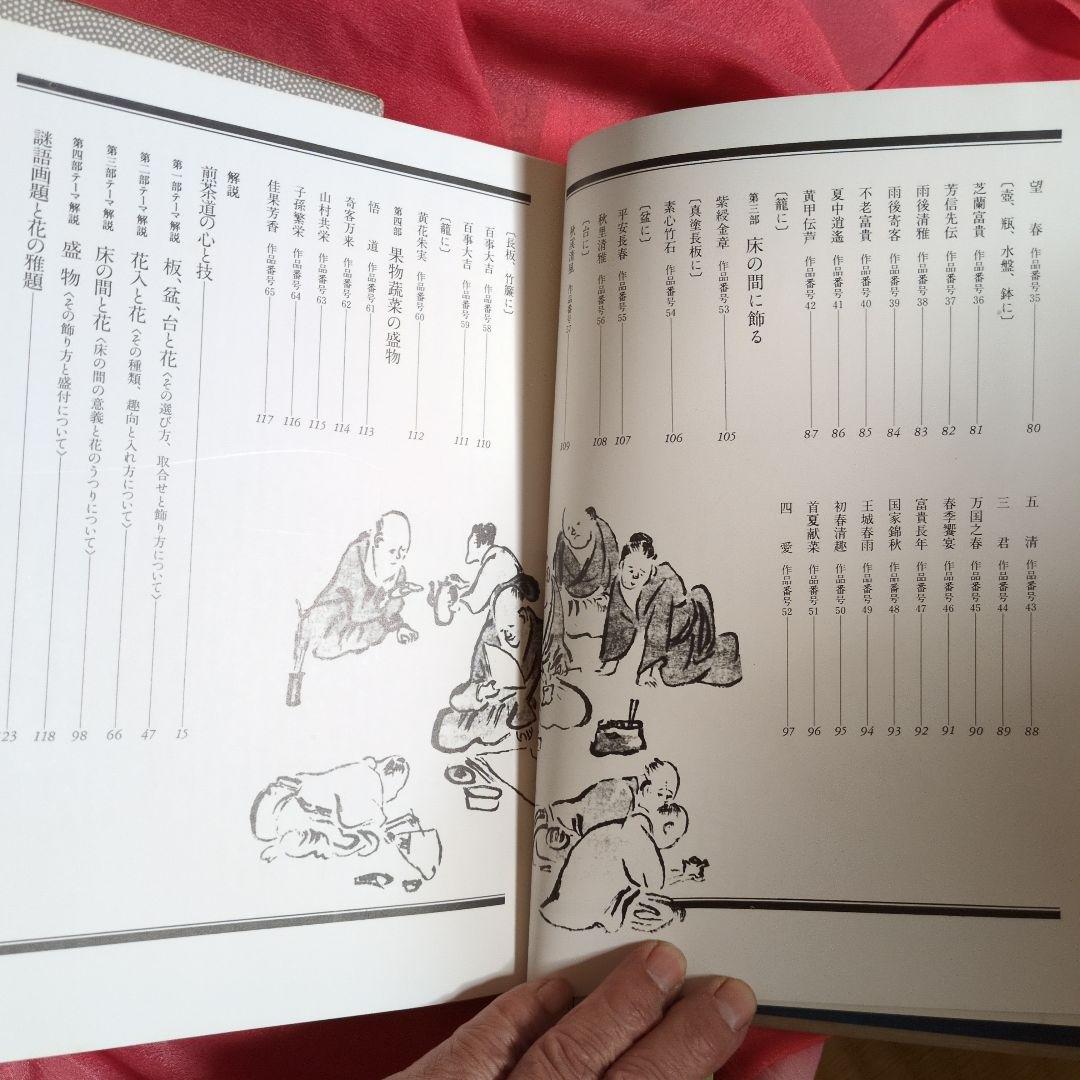 望　春　作品番号35　80
〔壺、瓶、水盤、鉢に〕
芝蘭富貴　作品番号36　81
芳信先伝　作品番号37　82
雨後清雅　作品番号38　83
雨後寄客　作品番号39　84
不老富貴　作品番号40　85
夏中逍遙　作品番号41　86
黄甲伝芦　作品番号42　87
〔籠に〕
五　清　作品番号43　88
三　君　作品番号44　89
万国之春　作品番号45　90
春季饗宴　作品番号46　91
富貴長年　作品番号47　92
国家錦秋　作品番号48　93
王城春雨　作品番号49　94
初春清趣　作品番号50　95
首夏献菜　作品番号51　96
四　愛　作品番号52　97
第三部　床の間に飾る
紫綬金章　作品番号53　105
〔真塗長板に〕
素心竹石　作品番号54　106
〔盆に〕
平安長春　作品番号55　107
秋里清雅　作品番号56　108
〔台に〕
秋渓清風　作品番号57　109
〔長板、竹簾に〕
百事大吉　作品番号58　110
百事大吉　作品番号59　111
〔籠に〕
黄花朱実　作品番号60　112
第四部　果物蔬菜の盛物
悟　道　作品番号61　113
奇客万来　作品番号62　114
山村共栄　作品番号63　115
子孫繁栄　作品番号64　116
佳果芳香　作品番号65　117
解説
煎茶道の心と技
第一部テーマ解説　板、盆、台と花〈その選び方、取合せと飾り方について〉　15
第二部テーマ解説　花入と花〈その種類、趣向と入れ方について〉　47
第三部テーマ解説　床の間と花〈床の間の意義と花のうつりについて〉　66
第四部テーマ解説　盛物〈その飾り方と盛付について〉　98
謎語画題と花の雅題　118
23